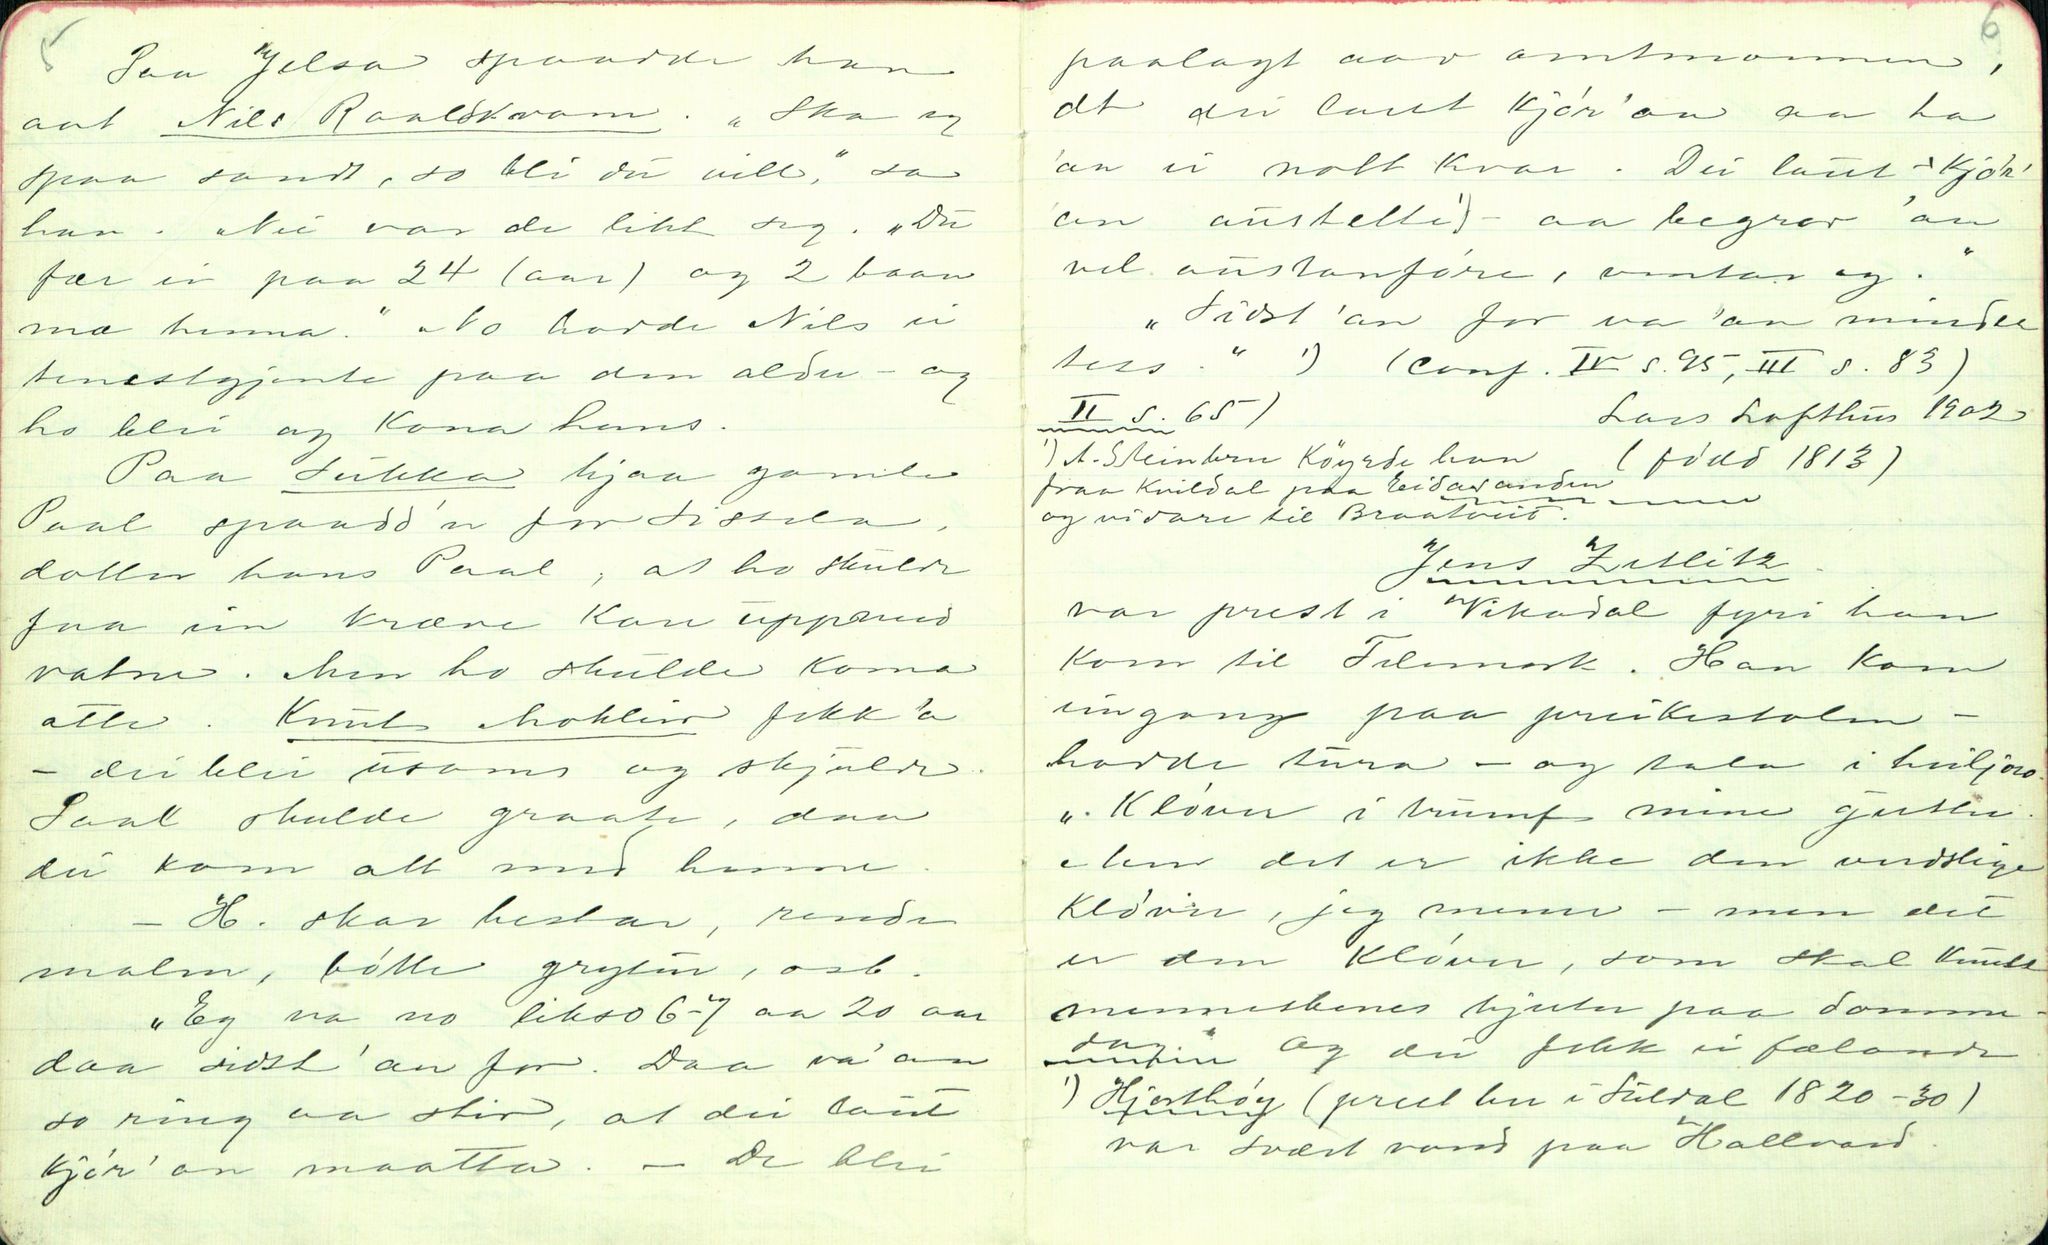 5
Paa Jelsa spaadde han
aat Nils Raaldkvam. „Ska eg
spaa sandt, so bli du vill," sa
han. Nei var de likt seg. „Du
fær ei paa 24 (aar) og 2 baan
mæ henna." No hadde Nils ei
tenestgjenta paa den aldr - og
ho blei og kona hans.
Paa Sukka hjaa gamle
Paal spaadd'n for Sissela,
dotter hans Paal, at ho skulde
faa ein kræve kar uppmed
vatne. Men ho skulde koma
atte. Knut Mokleiv fekk 'a
- dei blei usams og skjulde.
Paal skulde graate, daa
dei kom att med henne.
- H. skar hestar, rende
malm, bøtte grytur, osb.
„Eg va no likso 6-7 aa 20 aar
daa sidst 'an for. Daa va' an
so ring aa stir, at dei laut
kjør' an maatta. - De blei
6
paalagt aav amtmannen,
at dei laut kjør' an aa ha
'an ei nott kvar. Dei laut kjør'
an austette 1) - aa begrov 'an
vel austanføre, ventar eg."
„Sidst 'an for va 'an mindee
tess." 1) (Conf. IV s. 95, III s. 83)
II s. 65) Lars Lofthus 1902
1) A. Steinbru køyrde han (fødd 1813)
fraa Kvildal paa Eidastranden
og vidare til Braatveit.
Jens Zetlitz
var prest i Vikadal fyri han
kom til Telemark. Han kom
eingong paa preikestolen -
hadde tura - og tala i heiljoro.
„Kløver i trumf mine gutter.
Men det er ikke den verdslige
Kløver, jeg mener - men det
er den Kløver, som skal knuse
menneskenes hjerter paa domme-
dag." Og dei fekk ei fælande
1) Hjorthøy (prest her i Suldal 1820-30)
var svært vond paa Hallvard.